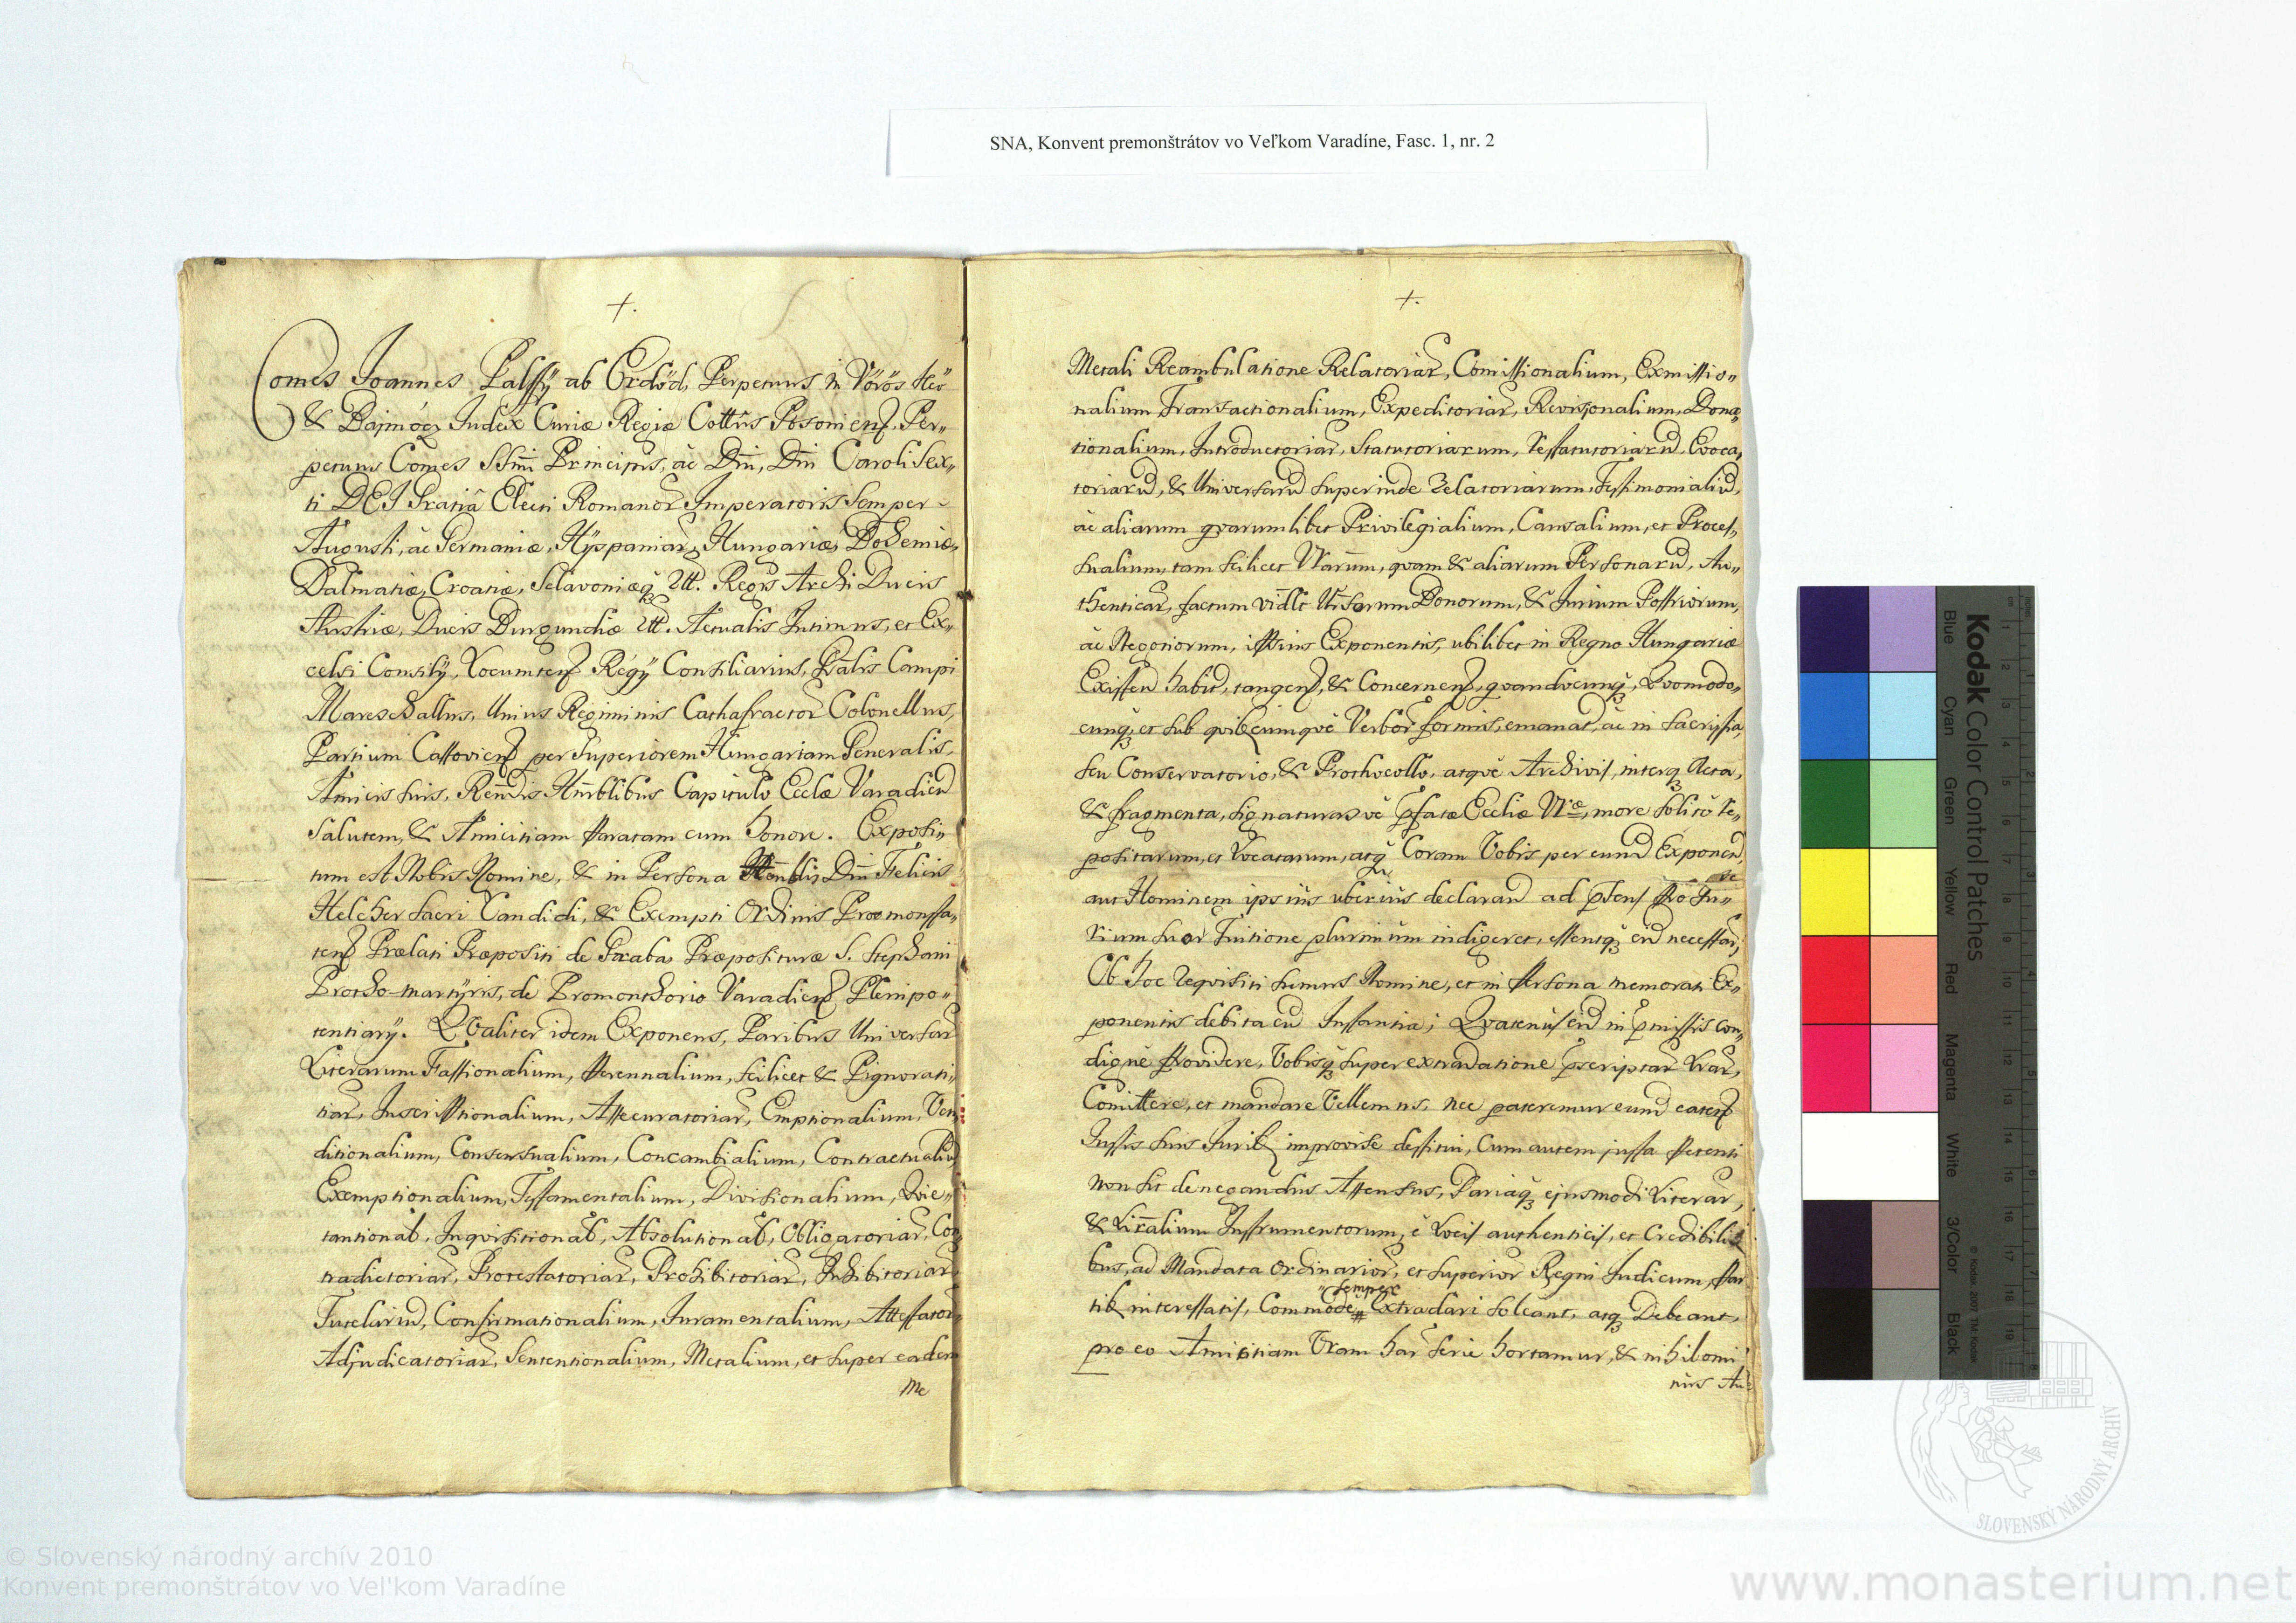 SNA, Konvent premonštrátov vo Veľkom Varadíne, Fasc. 1, nr. 2
+.
Comes Joannes Palffÿ ab Erdöd, Perpetuus in Vörös Keö
& Bajmócz Judex Curiæ Regiæ Cottûs Posoniens. Per„
petuus Comes SSmi Principis, ac Dni, Dni Caroli Sex„
ti DEI Gratiâ Electi Romanor Imperatoris Semper
Augusti, ac Germaniæ, Hÿspaniar, Hungariæ, Bohemiæ,
Dalmatiæ, Croatiæ, Sclavoniæq. Regis Archi Ducis
Austriæ, Ducis Burgundiæ Actualis Intimus, et Ex„
celsi Consilÿ Locumten Regÿ Consiliarius, Gralis Campi
Mareschallus, Unius Regiminis Cathafractor Colonellus,
Partium Cassovien per Superiorem Hungariam Generalis,
Amicis suis, Rendis Hnrblibus Capitulo Ecclæ Varadien
Salutem, & Amicitiam paratam cum honore. Exposi„
tum est Nobis Nomine, & in Persona Dni Felicis
Helcher Sacri Candidi, & Exempti Ordinis Præmonstra„
tens Prælati Præpositi de Gxaba, Præposituræ S. Stephani
Protho-martÿris, de Promonthorio Varadien Plenipo„
tentiarÿ. Qvaliter idem Exponens, Paribus Universar
Literarum Fassionalium, Perennalium, scilicet & Pignorati„
tiar, Inscriptionalium, Assecuratoriar, Emptionalium, Ven
ditionalium, Consensualium, Concambialium, Contractualiu
Exemptionalium, Testamentalium, Divisionalium, Qvie„
tantional, Inqvisitional, Absolutional, Obligatoriar, Con
tradictoriar, Protestatoriar, Prohibitoriar, Inhibitoriar
Tutelariu, Confirmationalium, Juramentalium, Attestator
Adjudicatoriar, Sententionalium, Metalium, et super eadem
Me
+.
Metali Reambulatione Relatoriar, Comissionalium, Exmissio„
nalium, Transactionalium, Expeditoriar, Revisionalium, Dona„
tionalium, Introductoriar, Statutoriarum, Restatutoriaru, Evoca„
toriaru, & Universaru superinde Relatoriarum, Testimonialiu,
ac aliarum qvarumlibet Privilegialium, Causalium, et Proces„
sualium, tam scilicet Vrarum, qvam & aliarum Personaru, Au„
thenticar, factum vidlt Bonorum, & Jurium Possriorum,
ac Negotiorum, ipsius Exponentis, ubilibet in Regno Hungariæ
Existen habit, tangen, & Concernen, qvandocunq, Qvomodo„
cunq, et sub qvibuscunqve Verbor formis, emanat, ac in Sacristia
seu Conservatorio, & Prothocollo, atqve Archivis, interq Acta,
& fragmenta, signaturasve pfatæ Eccliæ Vræ, more solito re„
positarum, et Locatarum, atq Coram Vobis per eund Exponen,
aut Hominem ipsius uberius declaran ad psens pro Ju„
re
rium suor Tuitione plurimum indigeret, essentq eid necessar;
Ob hoc reqvisiti sumus Nomine, et in Persona memorati Ex„
ponentis debita cu Instantia; Qvatenus eid in pmissis con„
digne providere, Vobisq super extradatione pscriptar Lrar,
Comittere, et mandare Vellemus, nec pateremur eund eaten
Justis suis Jurib improvise destitui, Cum autem justa petenti
non sit denegandus Assensus, Pariaq ejusmodi Literar,
& Liralium Instrumentorum, è Locis authenticis, et Credibili
bus, ad Mandata Ordinarior, et superior Regni Judicum, par
semper
tib interessatis, Commode Extradari soleant, atq Debeant,
pro eo Amicitiam Vram har serie hortamur, & nihilomi
nus Au
Kodak Color Control Patches
Blue
Cyan
Green
Yellow
Red
Magenta
White
3/Color
Black
© Kodak, 2007 TM: Kodak
SLOVENSKÝ NÁRODNÝ ARCHÍV
© Slovenský národný archív 2010
Konvent premonštrátov vo Vel'kom Varadíne
www.monasterium.net